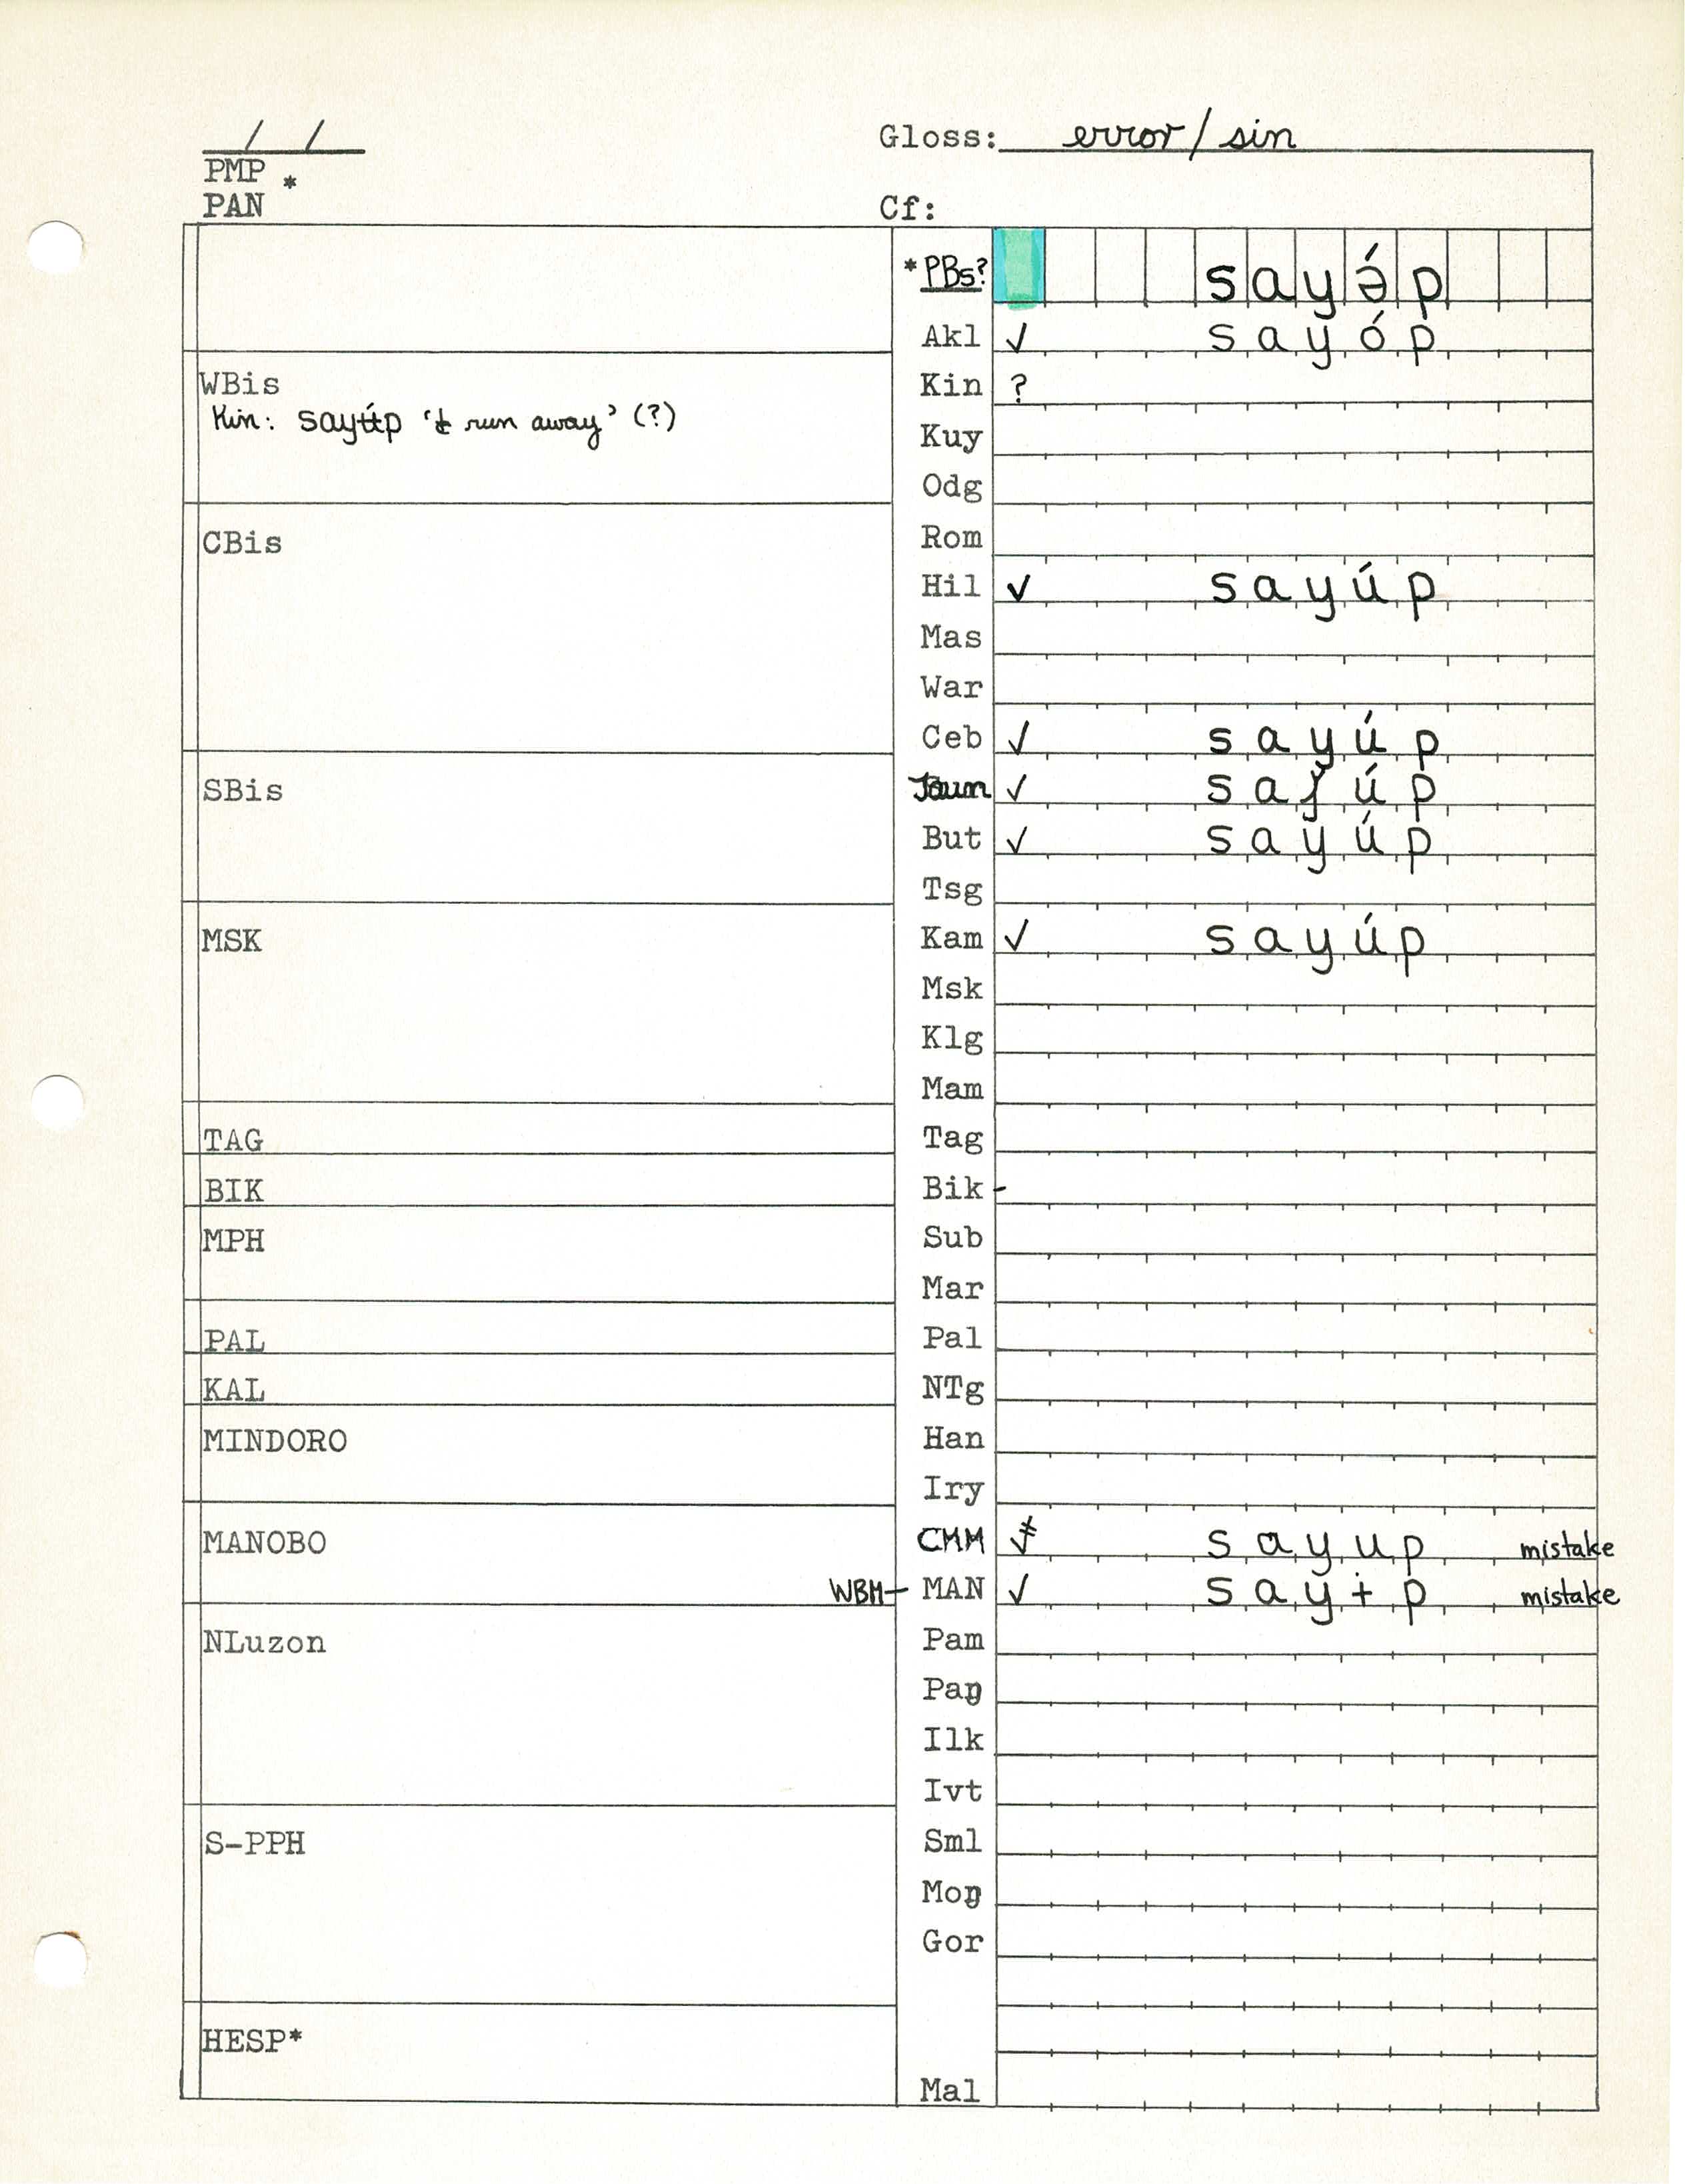 / /
Gloss: error/sin
PMP *
PAN
Cf:
*PBs? sayə́p
Akl ✓ sayóp
WBis
Kin ?
Kin: sayʉ́p ‘to run away’ (?)
Kuy
Odg
CBis
Rom
Hil ✓ sayúp
Mas
War
Ceb ✓ sayúp
SBis
✓ saɟúp
But ✓ sayúp
Tsg
MSK
Kam ✓ sayúp
Msk
Klg
Mam
TAG
Tag
BIK
Bik -
MPH
Sub
Mar
PAL
Pal
KAL
NTg
MINDORO
Han
Iry
MANOBO
CMM ✓ sayup mistake
WBM – MAN ✓ sayɨp mistake
NLuzon
Pam
Paŋ
Ilk
Ivt
S-PPH
Sml
Moŋ
Gor
HESP*
Mal